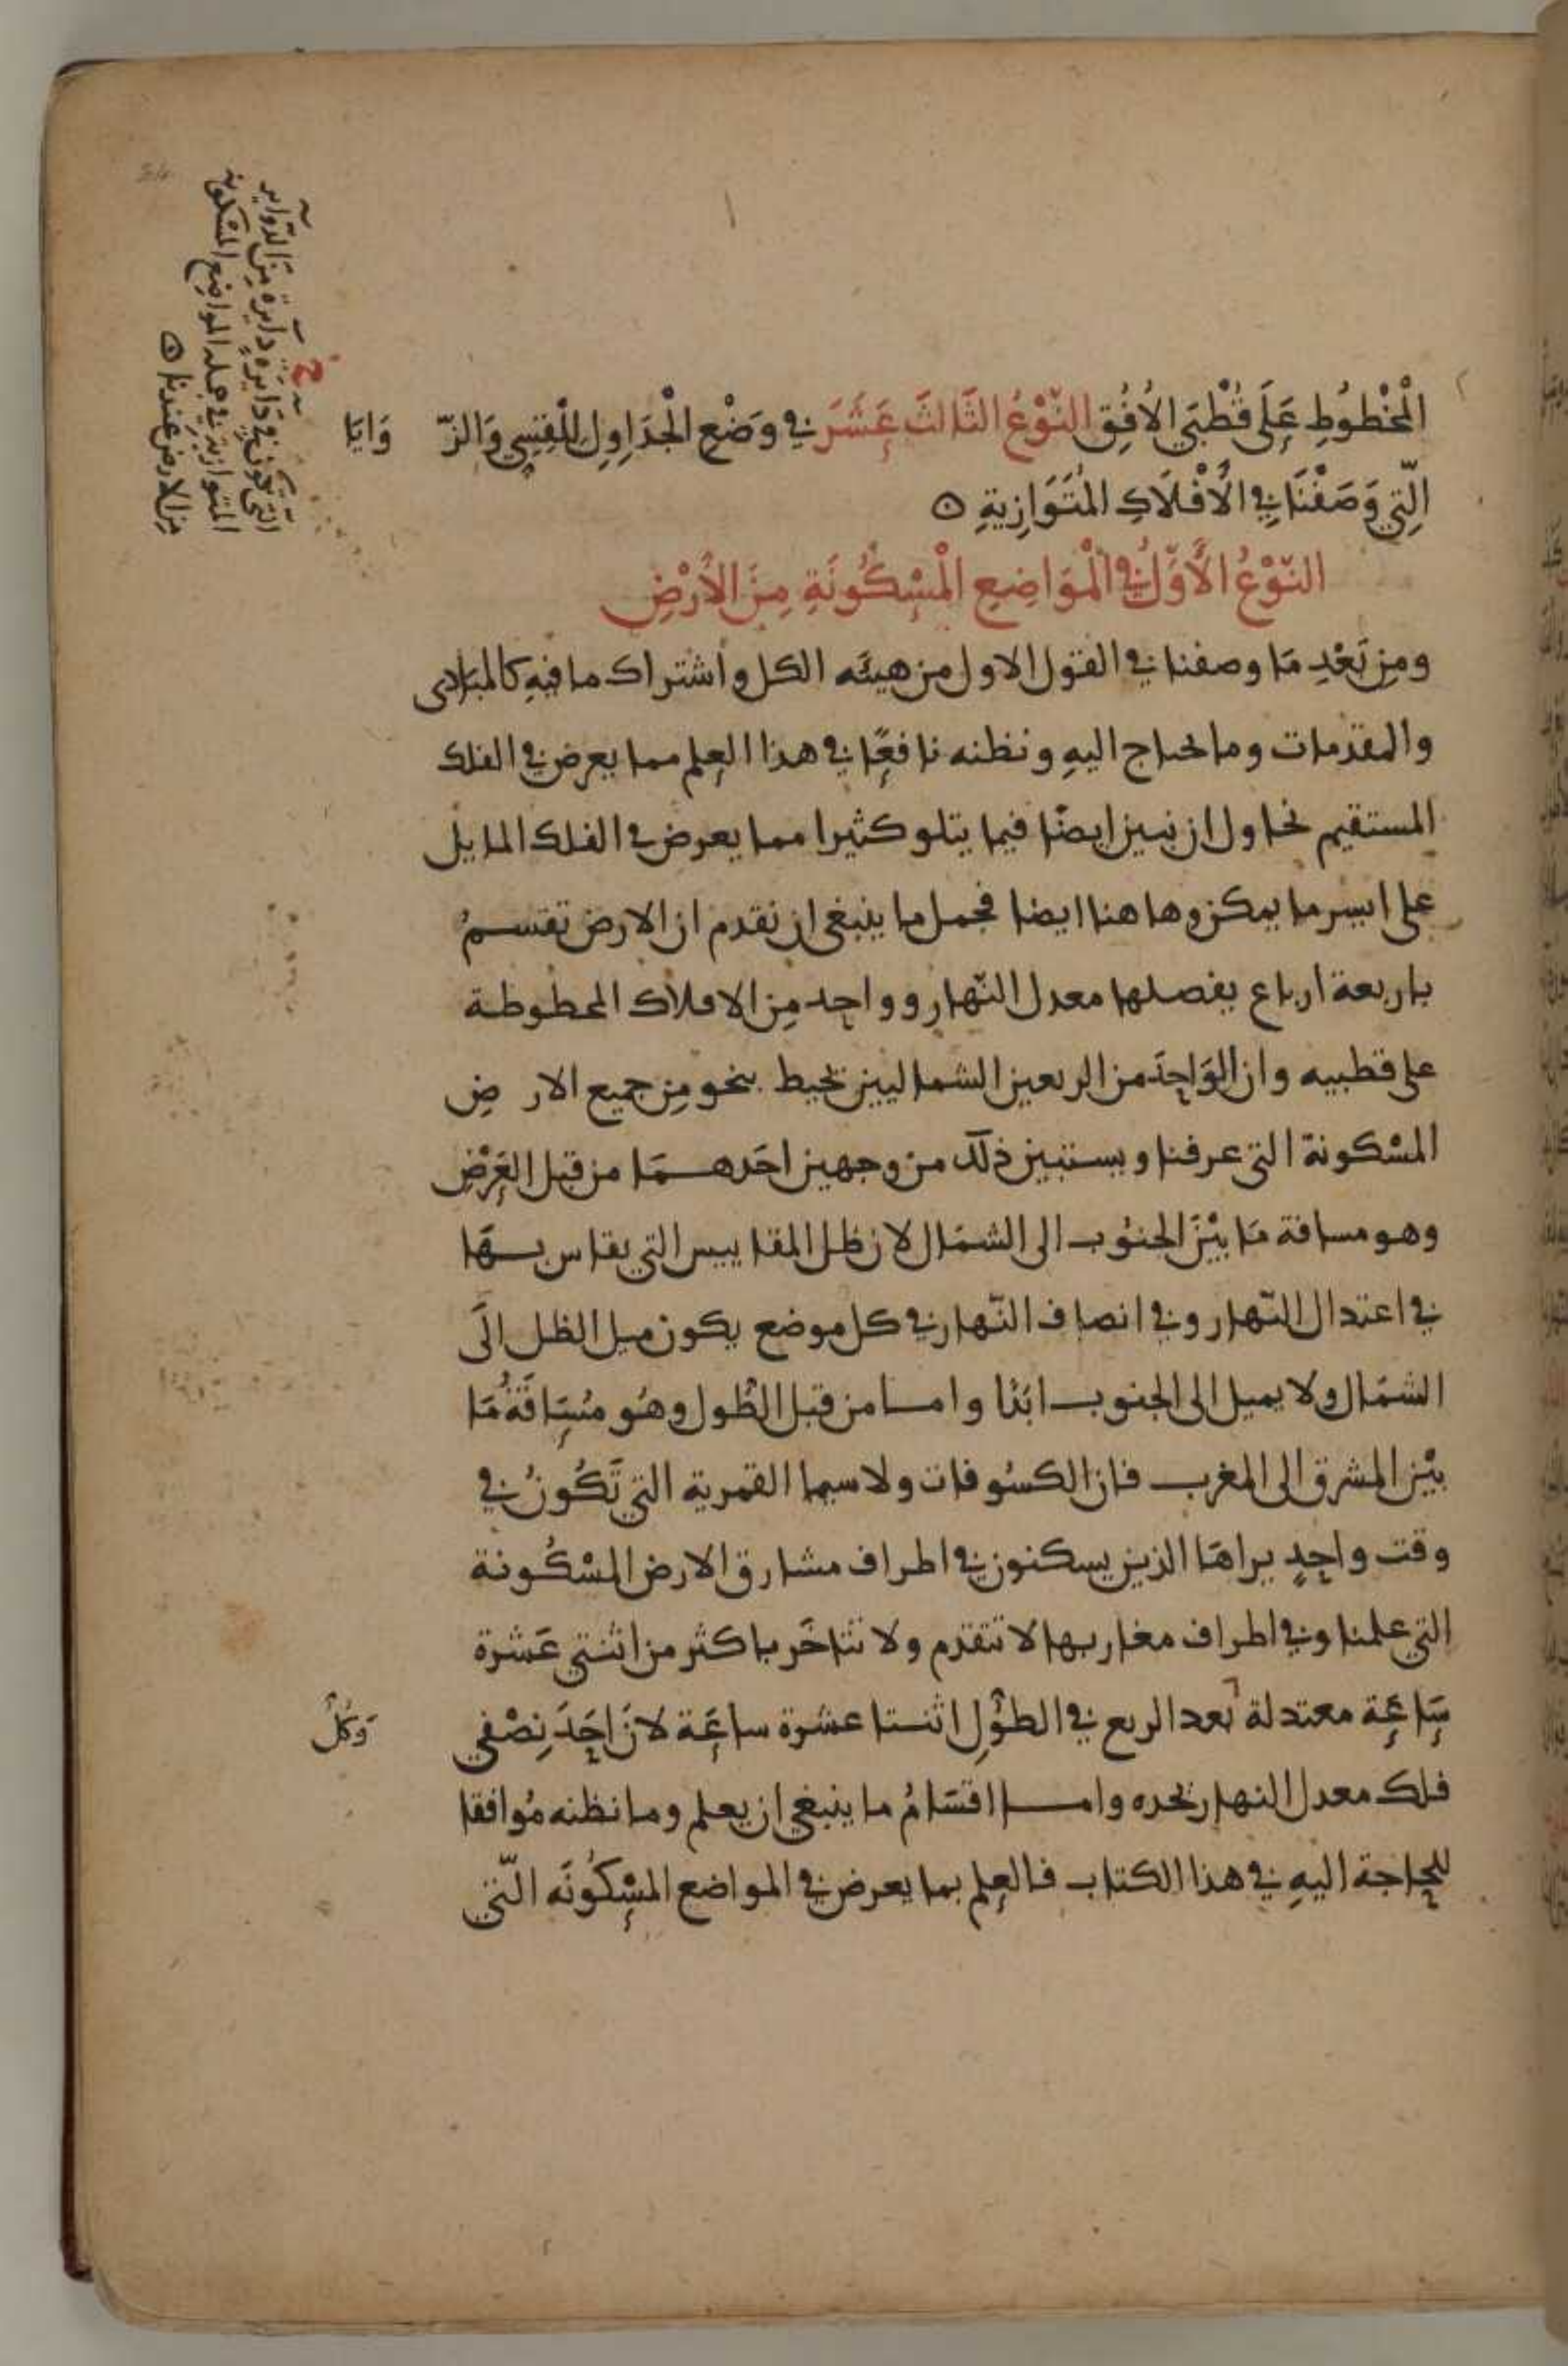 الْمَخْطُوطِ عَلَى قُطْبَيِ الأُفُقِ النَّوْعُ الثَّالثَ عَشَرَ في وَضْعِ الْجَدَاوِلِ لِلْقِسِي وَالزّ وَايَا
الَّتِي وَصَفْنَا فِي الأَفْلَاكِ المُتَوَازِيةِ ه
النّوْعُ الأَوَّلُ في الْمَوَاضِعِ الْمَسْكُونَةِ مِنَ الأَرْضِ
ومِن بَعْدِ مَا وصفنا في القول الاول من هيئه الكل واشتراك ما فيهِ كالمبادى
والمقدمات وما يحتاج اليهِ ونظنه نافعًا في هذا العلم مما يعرض في الفلك
المستقيم نحاول ان نبين ايضًا فيما يتلو كثيرا مما يعرض في الفلك المايل
على ايسر ما يمكن وها هنا ايضا فجمل ما ينبغي ان نقدم ان الارض تقسمُ
باربعة ارباع يفصلها معدل النّهار وواحد مِن الافلاك المخطوطة
على قطبيه وان الوَاحِدَ من الربعين الشماليين تحيط بنحو مِن جميع الار ضِ
المسْكونة التي عرفنا ويستبين ذلك من وجهين احَدهمَا من قبل العَرْضِ
وهو مسافة مَا بيْنَ الجنُوب الى الشمَال لان ظل المقاييس التي يقاس بهَا
في اعتدال النّهار وفي انصاف النّهار في كل موضع يكون ميل الظل الَى
الشمَال ولا يميل الى الجنوب ابَدًا واما من قبل الطُول وهُو مَسَافَةُ مَا
بيْن المشرق الى المغرب فان الكسُوفات ولا سيما القمرية التي تَكُونُ في
وقت واحِدٍ يراهَا الذين يسكنون في اطراف مشارق الارض المسْكُونة
التي علمنا وفي اطراف مغاربها لا تتقدم ولا تتاخَر باكثر من اثنتي عَشرة
سَاعَةٍ معتدلة بُعد الربع في الطوُلِ اثنتا عشرة ساعَة لانَ احَدَ نِصْفي
وَكلُّ
فلك معدل النهار تحده واما اقسَامُ ما ينبغي ان يعلم وما نظنه مُوافقا
للحاجة اليهِ في هذا الكتاب فالعِلم بما يعرض في المواضع المسْكُونَه الّتي
دايرهٍ دَايرَة مِنَ الدّواير
التي تكونُ في
المتوازية في جمله المواضع المسْكونه
مِن الارض عندنا ه